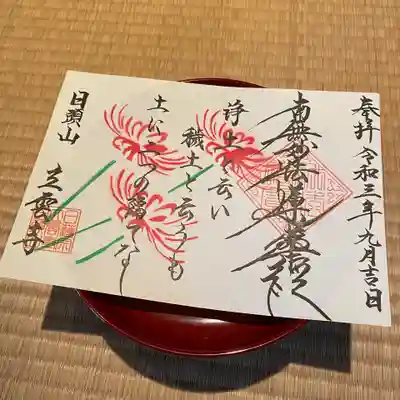 奉拝 令和三年九月吉日
南無妙法蓮華経
浄土と云い
穢土と云うも
土に二つの隔てなし
日頭山
立雲寺